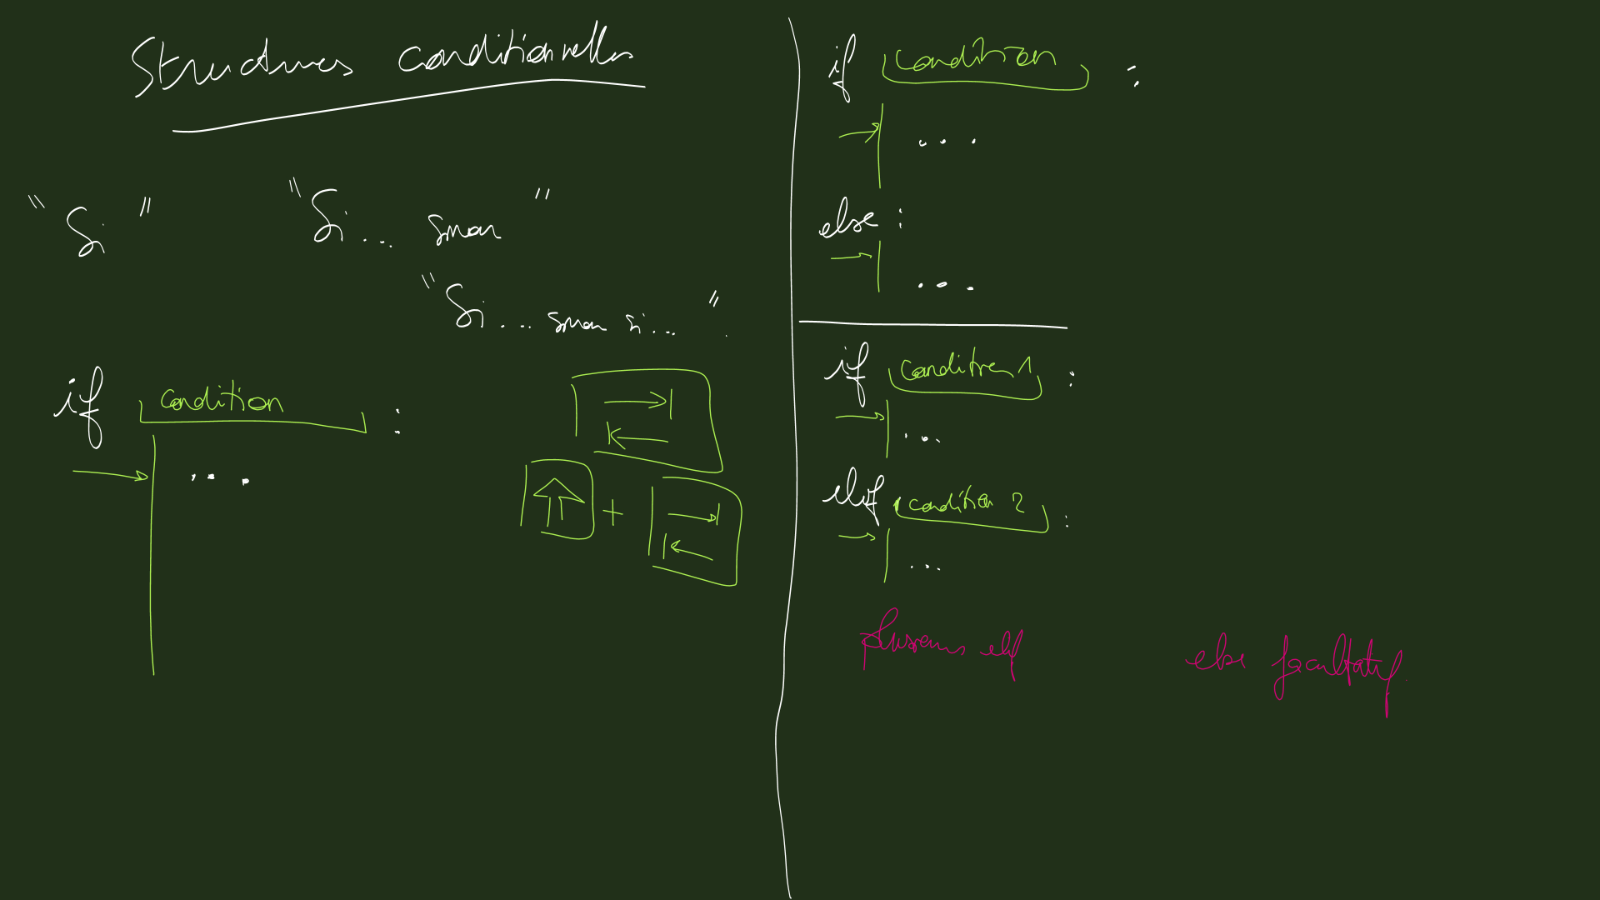 Structures conditionnelles
"Si" "Si... sinon"
"Si... sinon si...".
if condition :
...
+
if condition :
...
else :
...
if condition 1 :
...
elif condition 2 :
...
plusieurs elif else facultatif.